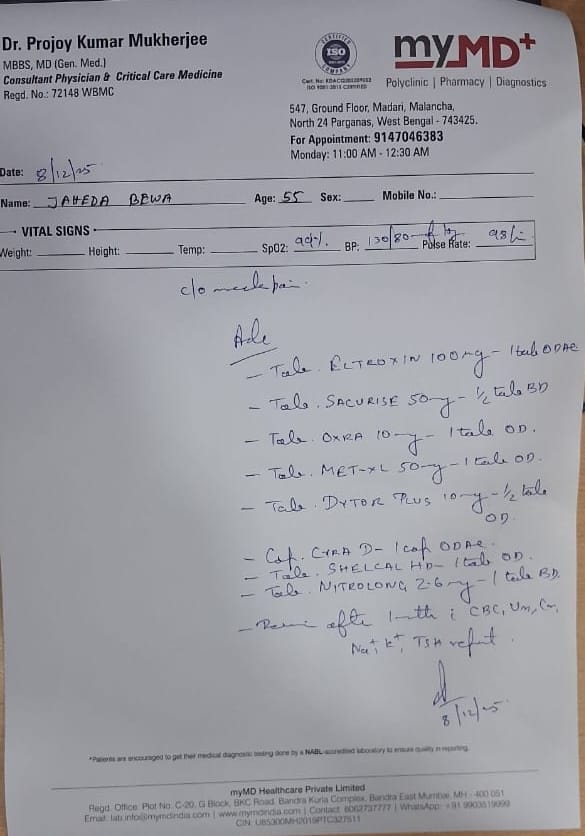 Dr. Projoy Kumar Mukherjee
MBBS, MD (Gen. Med.)
Consultant Physician & Critical Care Medicine
Regd. No.: 72148 WBMC
CERTIFIED
ISO
COMPANY
myMD+
Polyclinic | Pharmacy | Diagnostics
547, Ground Floor, Madari, Malancha,
North 24 Parganas, West Bengal - 743425.
For Appointment: 9147046383
Monday: 11:00 AM - 12:30 AM
Date: 8/12/25
Name: JAHEDA BEWA Age: 55 Sex: Mobile No.:
VITAL SIGNS
Weight: Height: Temp: SpO2: BP: 130/80 Pulse Rate: 98/
c/o
Adv
- Tab. ELTROXIN 100mg - 1 tab ODAC
- Tab. SACURISE 50mg - 1/2 tab BD
- Tab. OXRA 10mg - 1 tab OD.
- Tab. MET-XL 50mg - 1 tab OD.
- Tab. DYTOR PLUS 10mg - 1/2 tab
OD.
- Cap. CYRA D - 1 cap ODAC.
- Tab. SHELCAL HD - 1 tab OD.
- Tab. NITROLONG 2.6mg - 1 tab BD.
- after CBC, Ur, Cr,
Na+, K+, TSH report.
8/12/25
*Patients are encouraged to get their medical diagnostic testing done by a NABL-accredited laboratory to ensure quality in reporting.
myMD Healthcare Private Limited
Regd. Office: Plot No. C-20, G Block, BKC Road, Bandra Kurla Complex, Bandra East Mumbai, MH - 400 051
Email: lab.info@mymdindia.com | www.mymdindia.com | Contact: 6062737777 | WhatsApp: +91 9903519999
CIN: U85300MH2019PTC327511